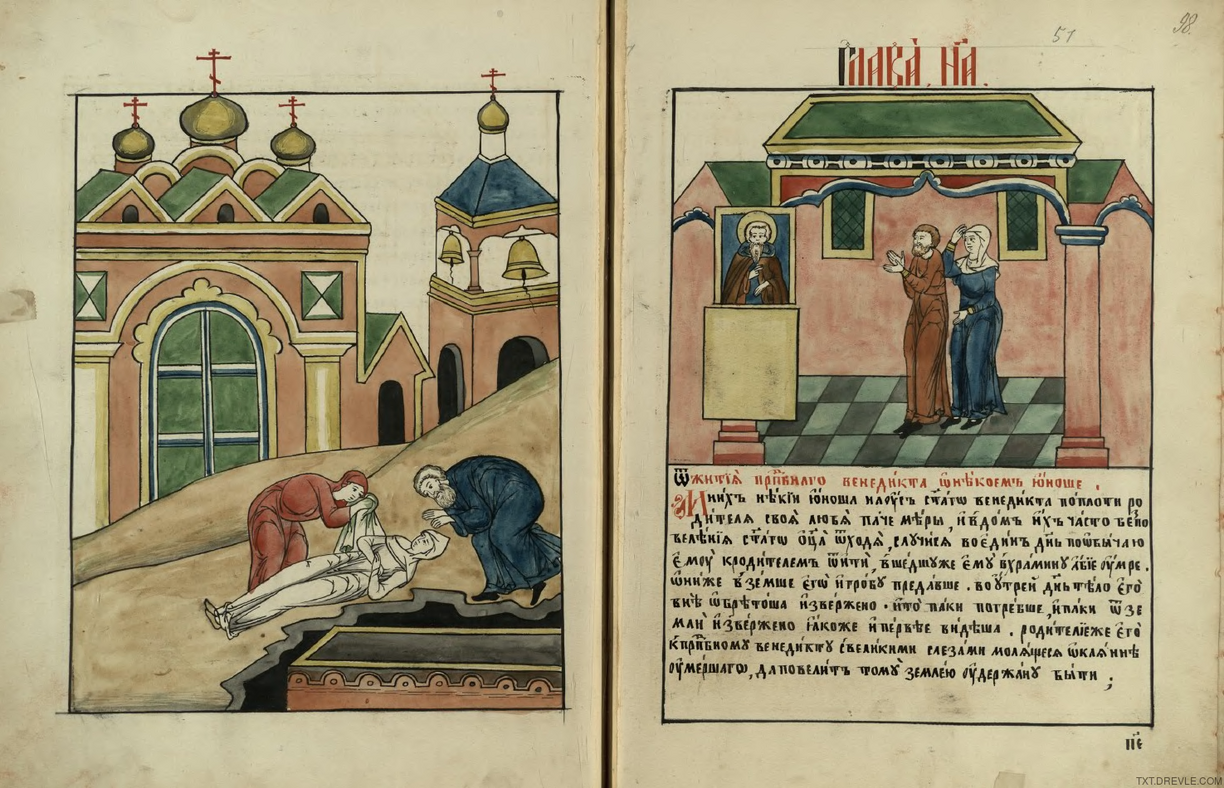 51
98
Глава̀, н҃а.
Ѿжитїѧ̀ прпⷣбнаго венеди́кта ѡ҆нѣ́коемъ ю҆́ноше .
И҆ни́хъ нѣ́кїи ю҆́ноша илоу́съ ст҃а́гѡ венеди́кта по́плоти ро
ди́телѧ своѧ̀ любѧ̀ па́че мѣ́ры , и҆вдо́мъ и҆́хъ ча́сто
ст҃а́гѡ ѻ҆ц҃а̀ ѿхо́дѧ̀ , случи́сѧ во є҆ди́нъ де́нь поѡ҆бы́чаю
є҆моу̀ кроди́телемъ ѿи́ти , в̾ше́дшуже є҆мꙋ̀ вхра́мину а҆́бїе оу҆́мре .
ѡ҆ни́же взе́мше є҆го̀ и҆гро́бу преда́вше . воу҆́трей де́нь тѣ́ло є҆го̀
внѣ̀ ѡ҆брѣто́ша и҆зве́ржено . и҆то̀ па́ки погре́бше , и҆па́ки ѿзе
млѝ и҆зве́ржено ꙗ҆́коже и҆пе́рвѣе ви́дѣша . роди́телїеже є҆го̀
кпрпⷣбному венеди́кту свели́кими слеза́ми молѧ́щесѧ ѡ҆каѧ́ннѣ
оу҆ме́ршагѡ , даповели́тъ тому̀ земле́ю оу҆держа́ну бы́ти ;
п҃є
TXT.DREVLE.COM